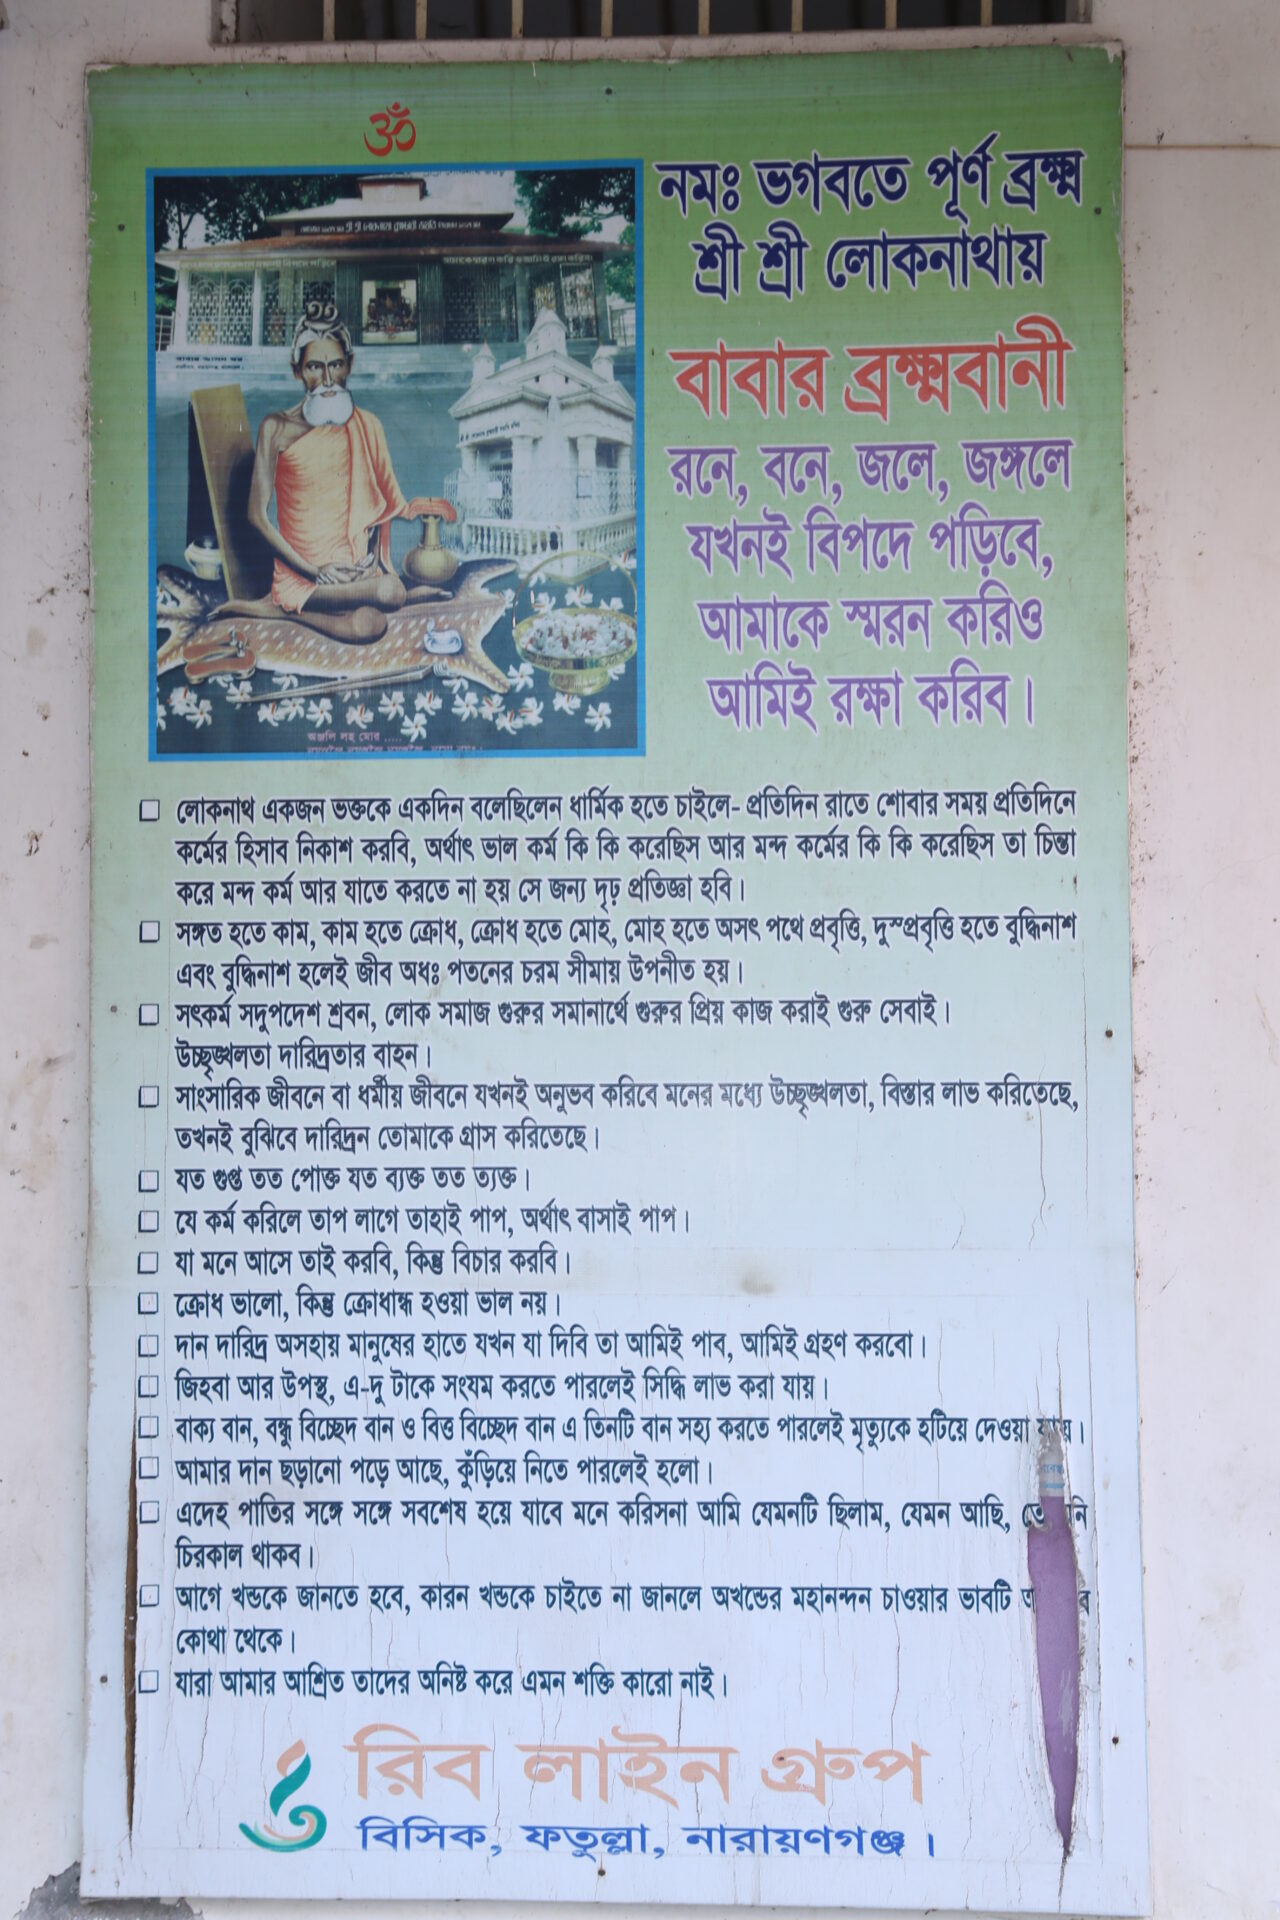 ॐ
নমঃ ভগবতে পূর্ণ ব্রক্ষ্ম
শ্রী শ্রী লোকনাথায়
বাবার ব্রক্ষ্মবানী
রনে, বনে, জলে, জঙ্গলে
যখনই বিপদে পড়িবে,
আমাকে স্মরন করিও
আমিই রক্ষা করিব।
অঞ্জলি লহ মোর .....
□ লোকনাথ একজন ভক্তকে একদিন বলেছিলেন ধার্মিক হতে চাইলে- প্রতিদিন রাতে শোবার সময় প্রতিদিনে
কর্মের হিসাব নিকাশ করবি, অর্থাৎ ভাল কর্ম কি কি করেছিস আর মন্দ কর্মের কি কি করেছিস তা চিন্তা
করে মন্দ কর্ম আর যাতে করতে না হয় সে জন্য দৃঢ় প্রতিজ্ঞা হবি।
□ সঙ্গত হতে কাম, কাম হতে ক্রোধ, ক্রোধ হতে মোহ, মোহ হতে অসৎ পথে প্রবৃত্তি, দুস্প্রবৃত্তি হতে বুদ্ধিনাশ
এবং বুদ্ধিনাশ হলেই জীব অধঃ পতনের চরম সীমায় উপনীত হয়।
□ সৎকর্ম সদুপদেশ শ্রবন, লোক সমাজ গুরুর সমানার্থে গুরুর প্রিয় কাজ করাই গুরু সেবাই।
উচ্ছৃঙ্খলতা দারিদ্রতার বাহন।
□ সাংসারিক জীবনে বা ধর্মীয় জীবনে যখনই অনুভব করিবে মনের মধ্যে উচ্ছৃঙ্খলতা, বিস্তার লাভ করিতেছে,
তখনই বুঝিবে দারিদ্রন তোমাকে গ্রাস করিতেছে।
□ যত গুপ্ত তত পোক্ত যত ব্যক্ত তত ত্যক্ত।
□ যে কর্ম করিলে তাপ লাগে তাহাই পাপ, অর্থাৎ বাসাই পাপ।
□ যা মনে আসে তাই করবি, কিন্তু বিচার করবি।
□ ক্রোধ ভালো, কিন্তু ক্রোধান্ধ হওয়া ভাল নয়।
□ দান দারিদ্র অসহায় মানুষের হাতে যখন যা দিবি তা আমিই পাব, আমিই গ্রহণ করবো।
□ জিহবা আর উপস্থ, এ-দু টাকে সংযম করতে পারলেই সিদ্ধি লাভ করা যায়।
□ বাক্য বান, বন্ধু বিচ্ছেদ বান ও বিত্ত বিচ্ছেদ বান এ তিনটি বান সহ্য করতে পারলেই মৃত্যুকে হটিয়ে দেওয়া যায়।
□ আমার দান ছড়ানো পড়ে আছে, কুঁড়িয়ে নিতে পারলেই হলো।
□ এদেহ পাতির সঙ্গে সঙ্গে সবশেষ হয়ে যাবে মনে করিসনা আমি যেমনটি ছিলাম, যেমন আছি,
চিরকাল থাকব।
□ আগে খন্ডকে জানতে হবে, কারন খন্ডকে চাইতে না জানলে অখন্ডের মহানন্দন চাওয়ার ভাবটি
কোথা থেকে।
□ যারা আমার আশ্রিত তাদের অনিষ্ট করে এমন শক্তি কারো নাই।
রিব লাইন গ্রুপ
বিসিক, ফতুল্লা, নারায়ণগঞ্জ।